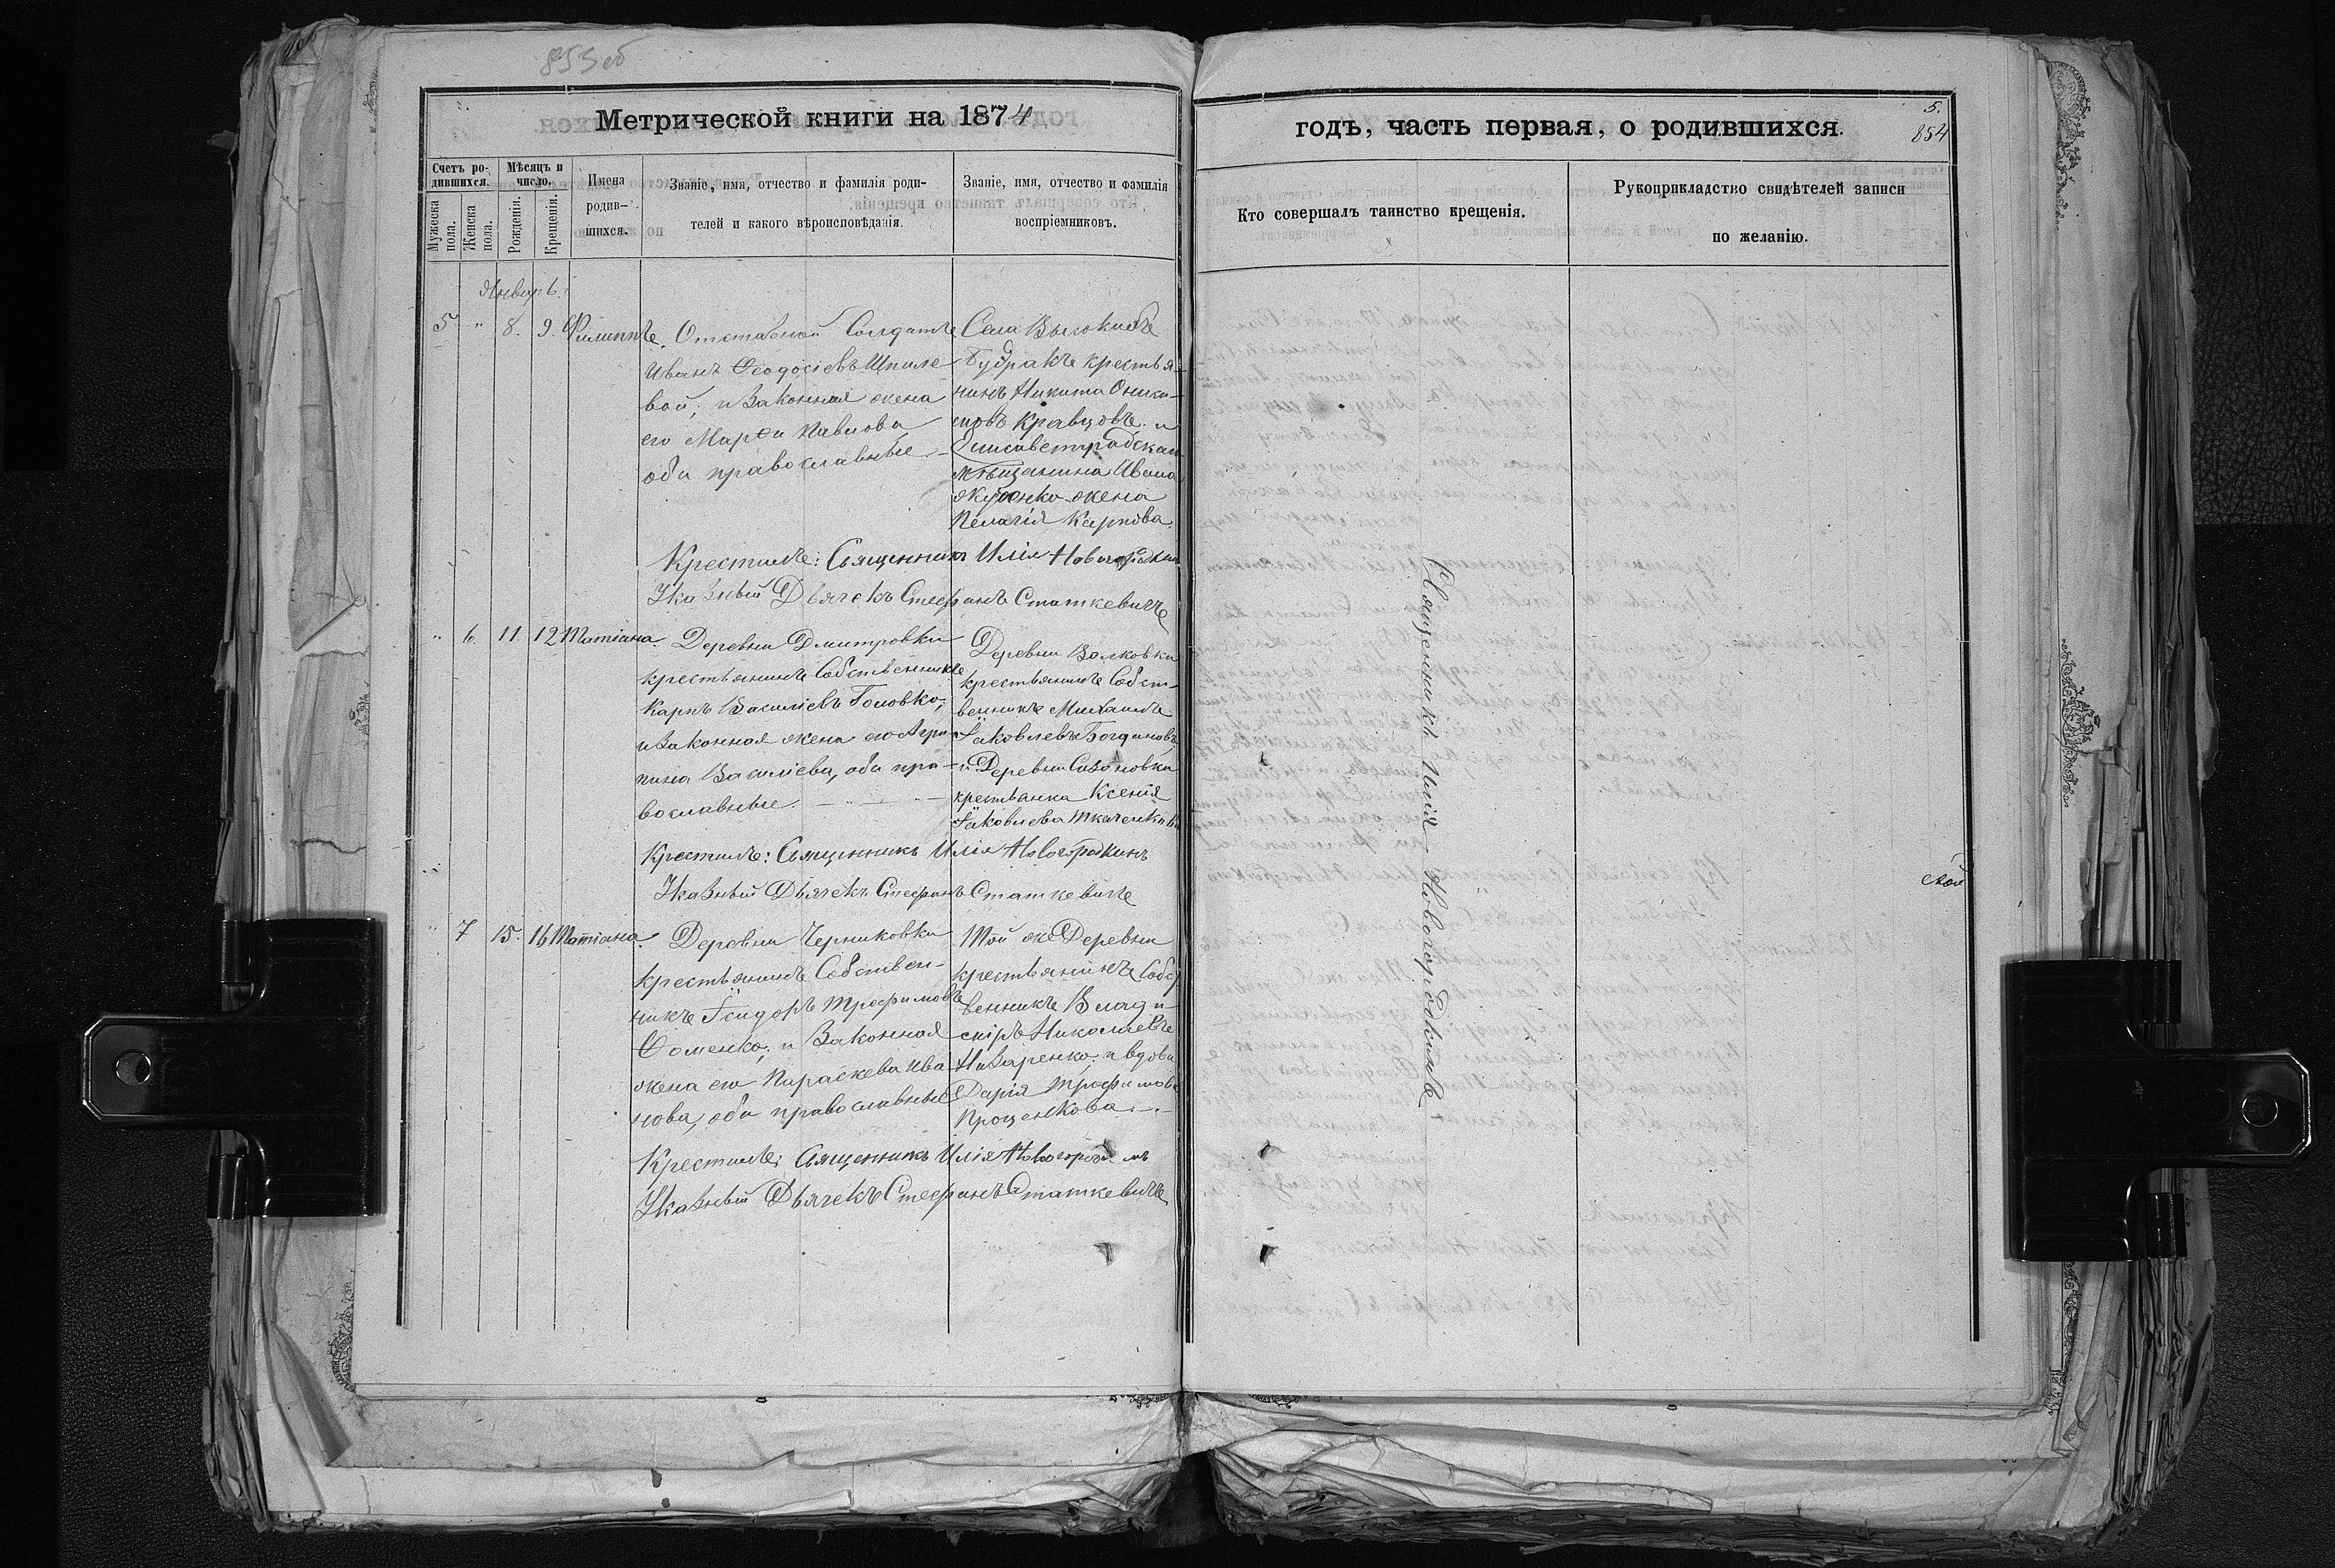 853об
Метрической книги на 1874
годъ, часть первая, о родившихся.
5.
854
Счетъ ро-
дившихся.
Мужеска
пола.
Женска
пола.
Мѣсяцъ и
число.
Рожденія.
Крещенія.
Имена
родив-
шихся.
Званіе, имя, отчество и фамилія роди-
телей и какого вѣроисповѣданія.
Званіе, имя, отчество и фамилія
воспріемниковъ.
Кто совершалъ таинство крещенія.
Рукоприкладство свидѣтелей записи
по желанію.
Январь
5 " 8. 9. Филиппъ.
Отставной Солдатъ
Иванъ Ѳеодосіевъ Шпиле
вой; и Законная жена
его Марѳа Павлова,
оба православные
Села Высокихъ
Буеракъ крестья-
нинъ Никита Оники-
мовъ Кравцовъ и
Елисаветградскаго
мѣщанина Ивана
жена
Пелагія Карпова.
Крестилъ: Священникъ Илія Новогородкинъ
Указный Дьячекъ Стефанъ Статкевичъ
" 6. 11. 12 Татіана.
Деревни Дмитровки
крестьянинъ Собственникъ
Карпъ Василіевъ Головко;
и Законная жена его Агри-
пина Василіева, оба пра-
вославные.
Деревни Валковки
крестьянинъ Собст-
венникъ Михаилъ
Іаковлевъ Богдановъ
и Деревни Сазоновки
крестьянка Ксенія
Іаковлева Ткаченкова
Крестилъ: Священникъ Илія Новогородкинъ
Указный Дьячекъ Стефанъ Статкевичъ
" 7 15. 16 Татіана.
Деревни Черниковки
крестьянинъ Собствен-
никъ Ісидоръ Трофимовъ
Ѳоменко; и Законная
жена его Параскева Ива
нова, оба православные
Той же Деревни
крестьянинъ Собст
венникъ Влади-
міръ Николаевъ
Назаренко; и вдова
Дарія Трофимова
Проценкова.
Крестилъ: Священникъ Илія Новогородкинъ
Указный Дьячекъ Стефанъ Статкевичъ
Священникъ Илія Новогородкинъ